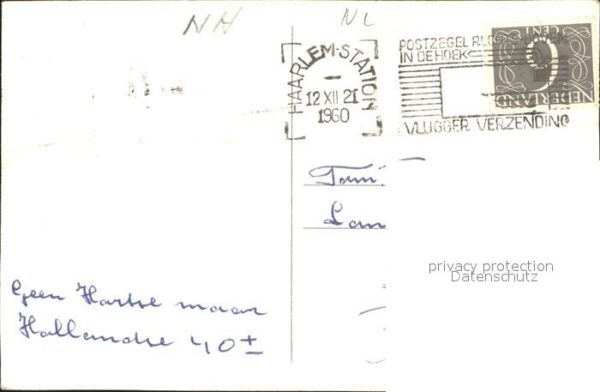 NH
NL
HAARLEM-STATION
12 XII 21
1960
POSTZEGEL RECHTS BOVEN
IN DE HOEK
VLUGGER VERZENDING
CENT
6
NEDERLAND
Fam
Lan
privacy protection
Datenschutz
Geen Hartse maar
Hollandse 40 ±